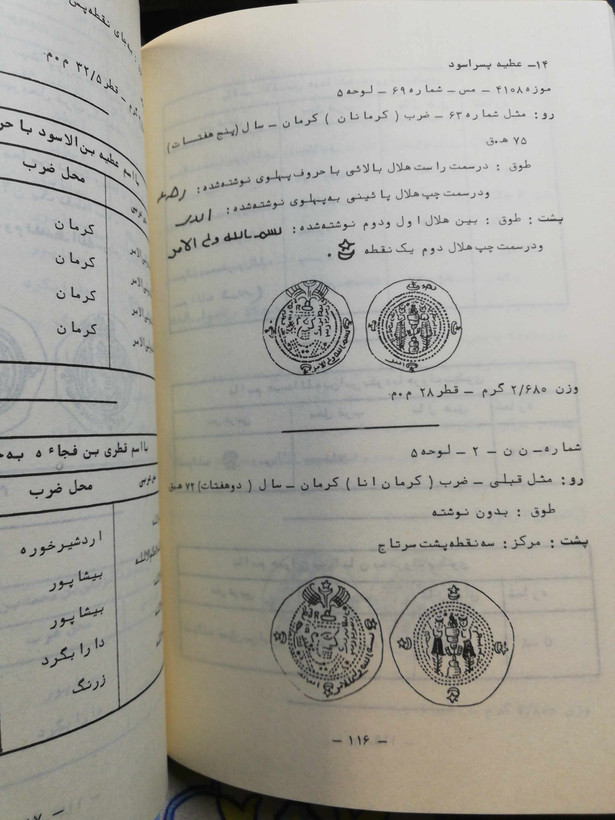 ۱۴ــ عطیه پسراسود
موزه ۴۱۰۸ ـ مس ـ شماره ۶۹ ـ لوحه ۵
رو : مثل شماره ۶۳ ـ ضرب ( کرمانان ) کرمان ـ سال (پنج هفتات)
۷۵ هـق
طوق : درسمت راست هلال بالائی با حروف پهلوی نوشته‌شده :
ودرسمت چپ هلال پائینی به‌پهلوی نوشته‌شده :
پشت : طوق : بین هلال اول ودوم نوشته‌شده : بسم الله ولی الامر
ودرسمت چپ هلال دوم یک نقطه .
وزن ۲/۶۸۰ گرم ـ قطر ۲۸ م.م.
شماره‌ـ ن ن ـ ۲ ـ لوحه ۵
رو : مثل قبلی ـ ضرب ( کرمان انا ) کرمان ـ سال ( دوهفتات ) ۷۲ هـق
طوق : بدون نوشته
پشت : مرکز : سه نقطه پشت سرتاج
ـ ۱۱۶ ـ
قطر ۳۲/۵ م.م.
با اسم عطیه بن الاسود با
محل ضرب
کرمان
کرمان
کرمان
کرمان
با اسم قطری بن فجاءه
محل ضرب
اردشیرخوره
بیشاپور
بیشاپور
دارابگرد
زرنگ